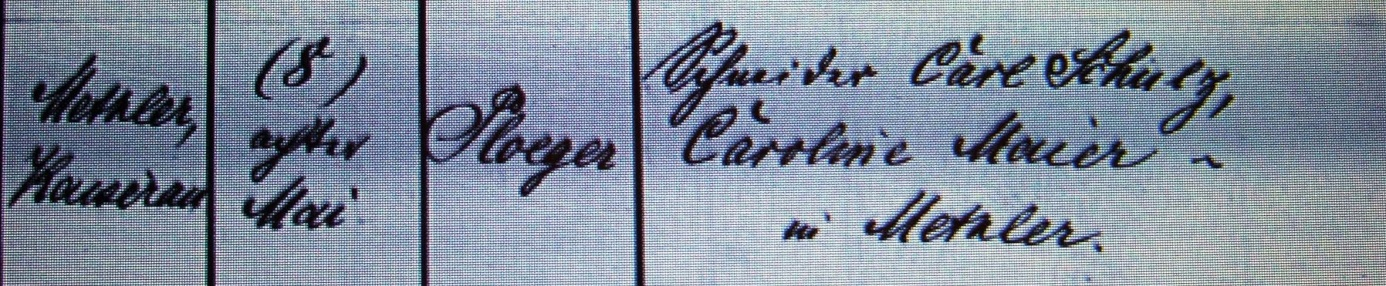 Methler,
Kauserau
(8)
achter
Mai
Ploeger
Schneider Carl Schulz,
Caroline Maier ~
in Methler.